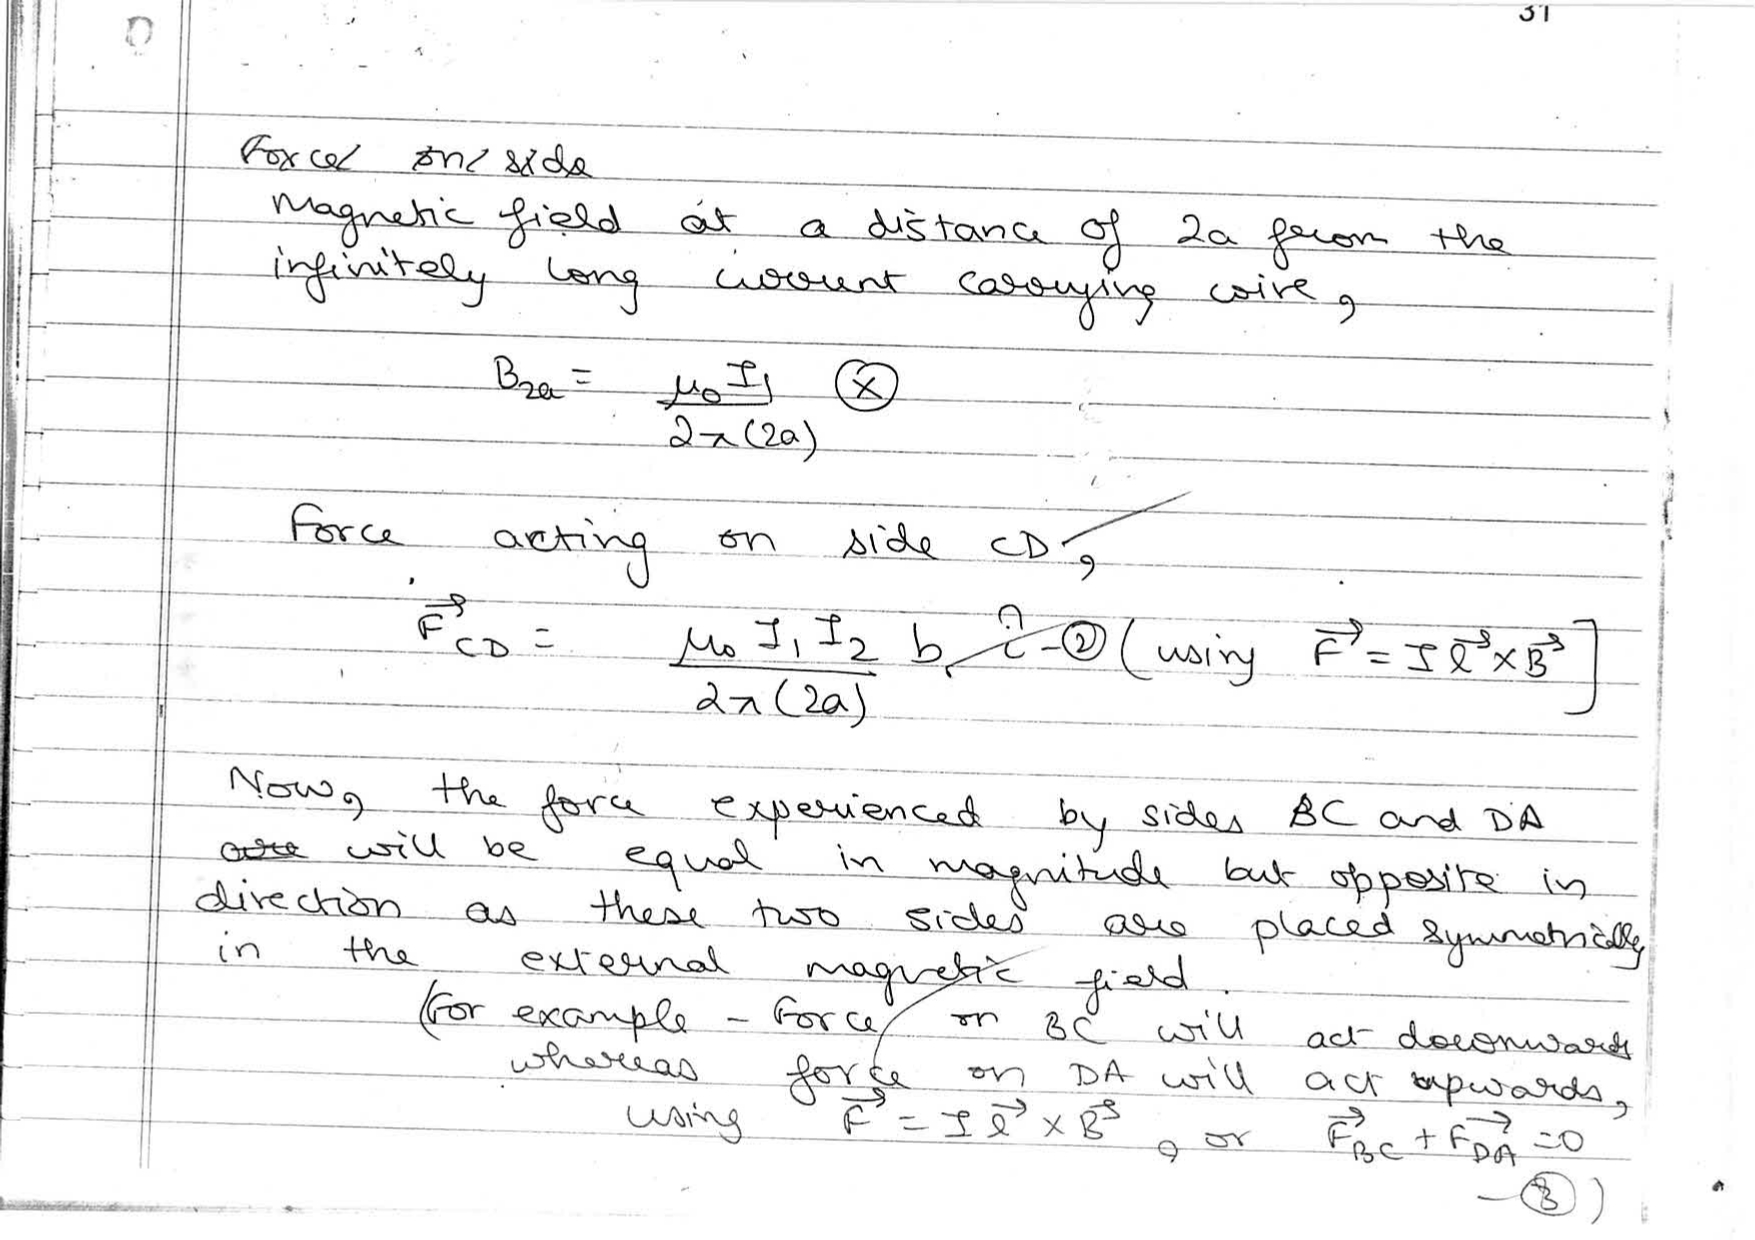 31
Force on side
Magnetic field at a distance of 2a from the
infinitely long current carrying wire,
B2a = μ0 I1 / 2π(2a) ⊗
Force acting on side CD,
F⃗CD = μ0 I1 I2 / 2π(2a) b î - ② (using F⃗ = I l⃗ × B⃗]
Now, the force experienced by sides BC and DA
are will be equal in magnitude but opposite in
direction as these two sides are placed symmetrically
in the external magnetic field.
(For example - Force on BC will act downwards
whereas force on DA will act upwards,
using F⃗ = I l⃗ × B⃗, or F⃗BC + F⃗DA = 0
- ③)